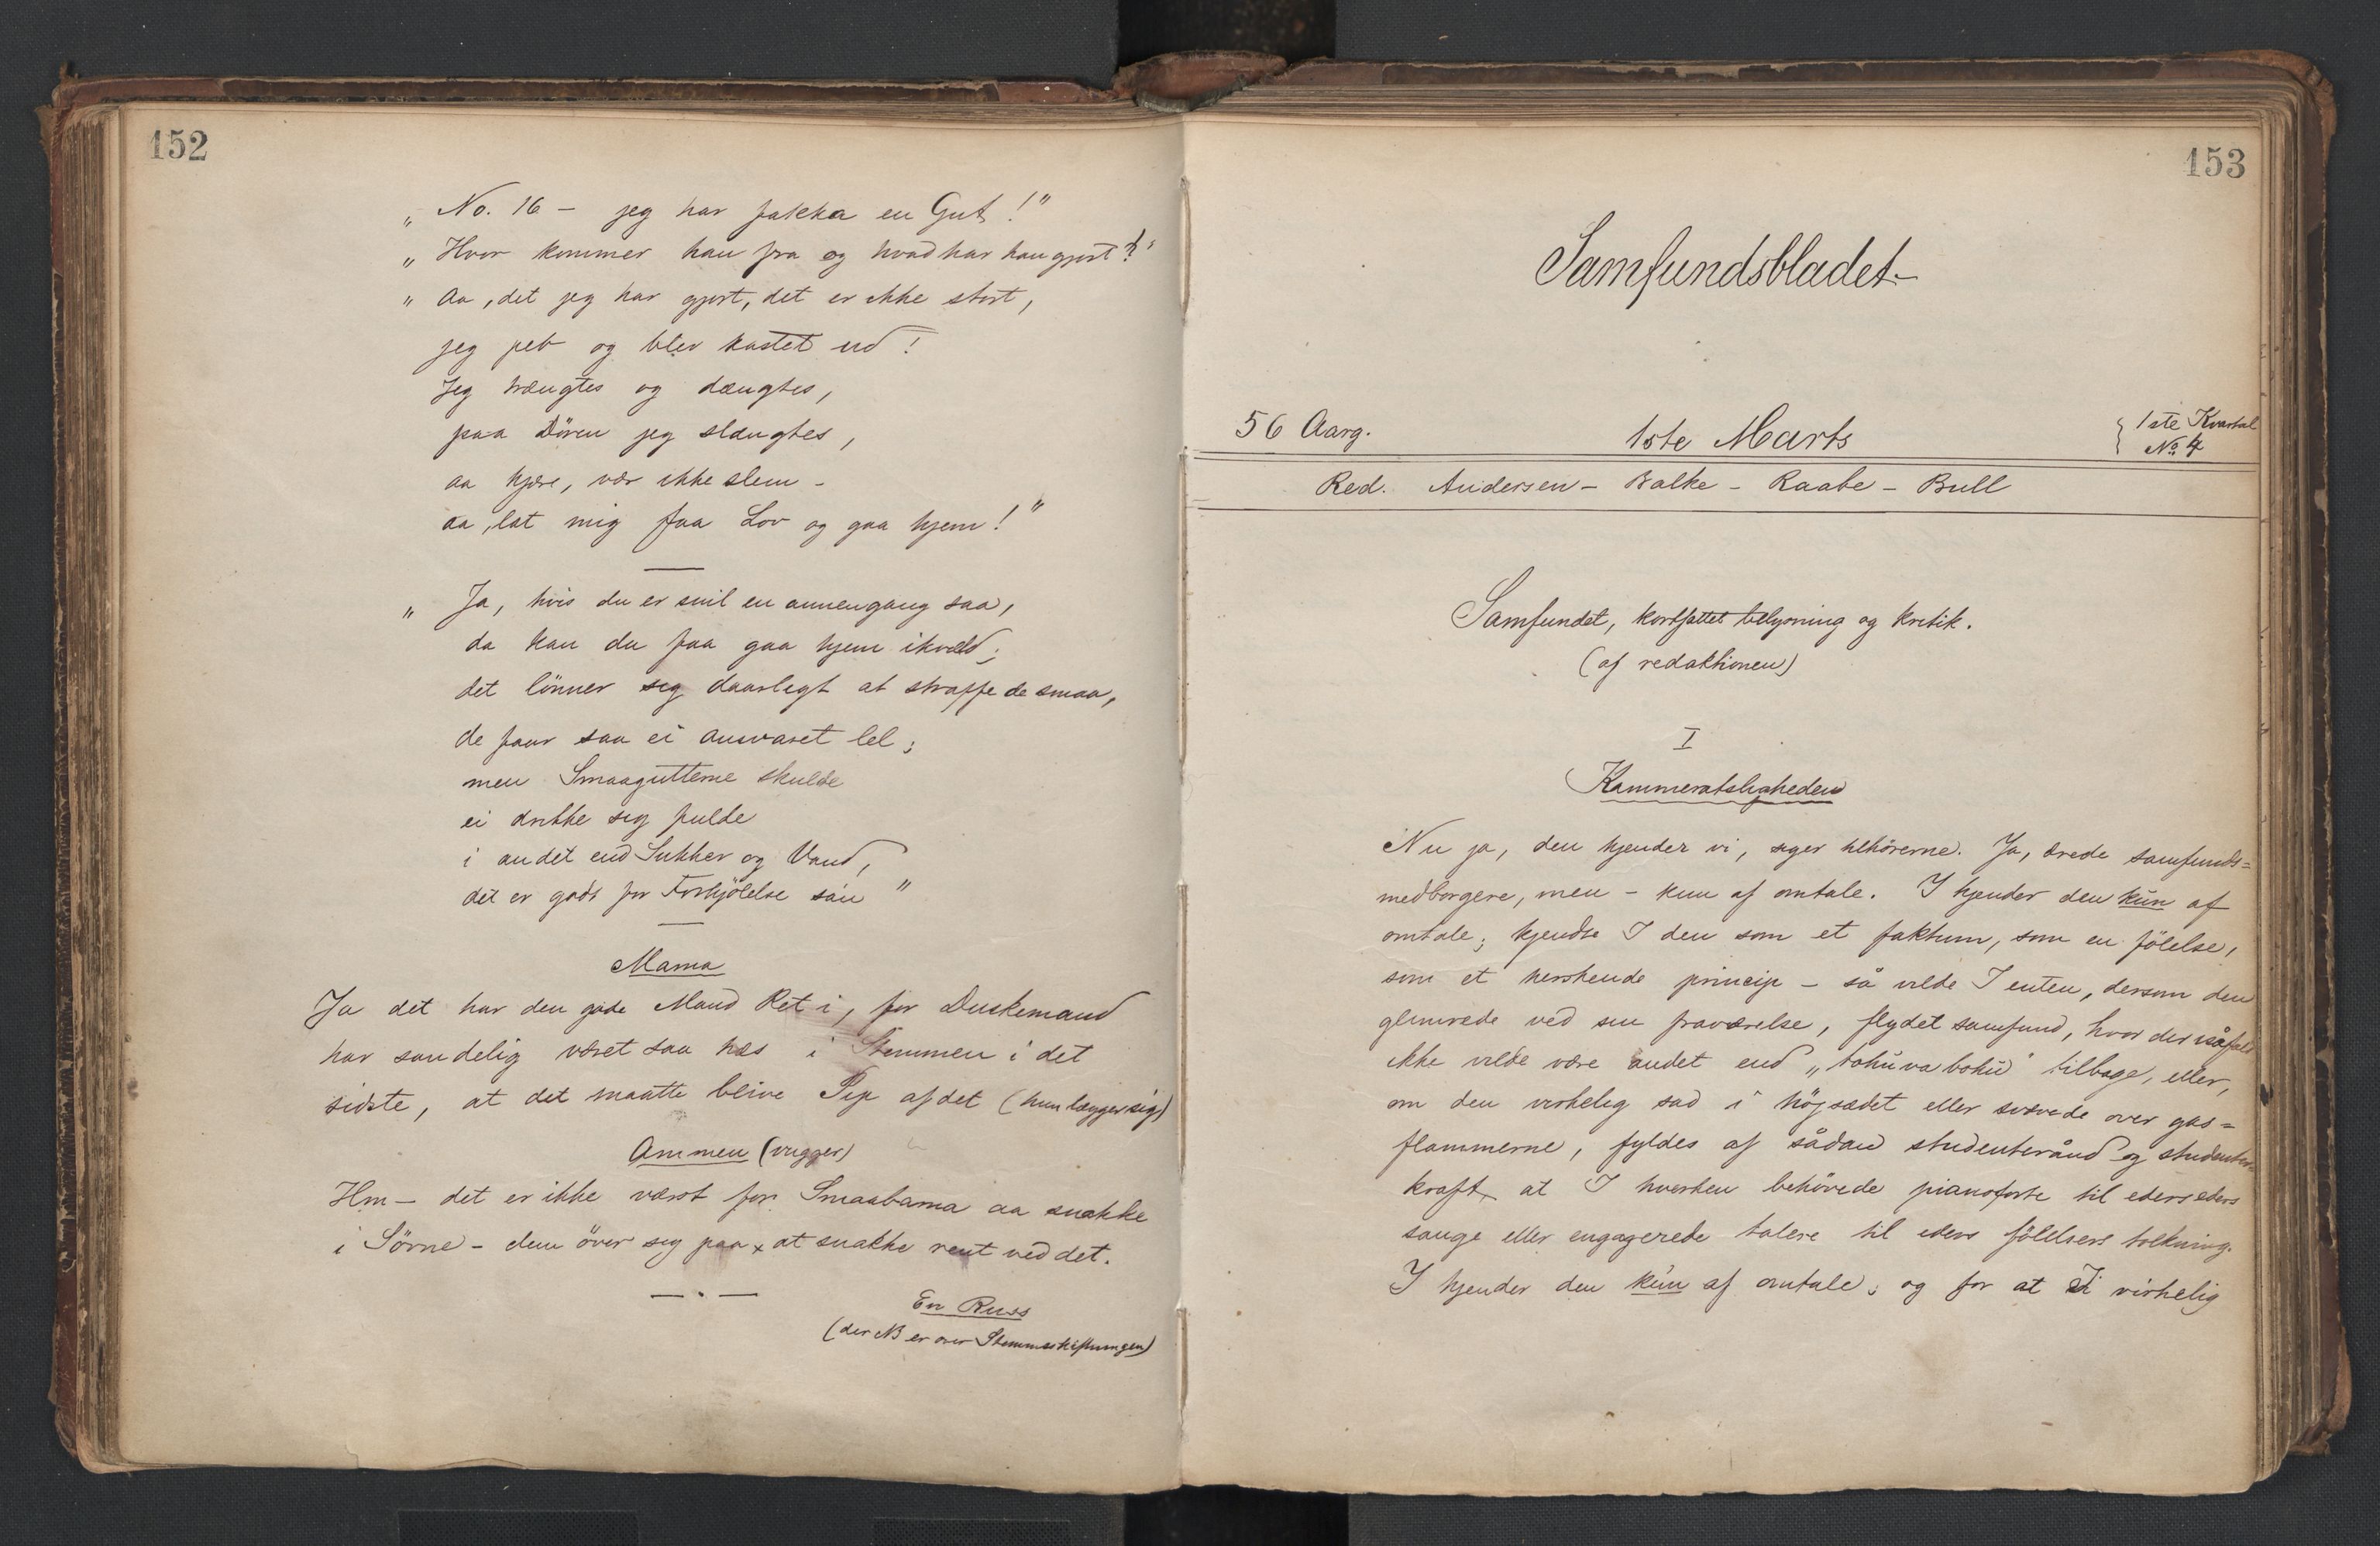 152
„ No. 16 – jeg har fakka en Gut!"
„ Hvor kommer han fra og hvad har han gjort?"
„ Aa, det jeg har gjort, det er ikke stort,
jeg peb og blev kastet ud!
Jeg trængtes og dængtes,
paa Dören jeg slængtes,
aa kjære, vær ikke slem –
aa, lat mig faa Lov og gaa hjem!"
„ Ja, hvis du er snil en annengang saa,
da kan du faa gaa hjem ikveld;
det lönner seg daarlegt at straffe de smaa,
de faar saa ei ansvaret lel;
men Smaagutterne skulde
ei drikke seg fulde
i andet end Sukker og Vand,
det er godt for Forkjölelse san"
Mama
Ja det har den gode Mand Ret i, for Duskemand
har sandelig været saa hæs i Stemmen i det
sidste, at det maatte blive Pip af det (hun lægger sig)
Ammen (vugger)
Hm – det er ikke værst for Smaabarna aa snakke
i Sövne – dem över seg paa at snakke rent ved det.
En Russ
(der NB er over Stemmeskiftningen)
153
Samfundsbladet
56 Aarg.
1ste Marts
1ste Kvartal
No 4
Red. Andersen – Balke – Raabe – Bull
Samfundet, kortfattet belysning og kritik.
(af redaktionen)
I
Kammeratsligheden
Nu ja, den kjender vi, siger tilhörerne. Ja, ærede samfunds=
medborgere, men – kun af omtale. I kjender den kun af
omtale; kjendte I den som et faktum, som en fölelse,
som et herskende princip – så vilde I enten, dersom den
glimrede ved sin fraværelse, flydet samfund, hvor der isåfald
ikke vilde være andet end „tohuvabohu" tilbage, eller,
om den virkelig sad i höjsædet eller svævede over gas=
flammerne, fyldes af sådan studenterånd og studenter=
kraft, at I hverken behövede pianoforte til eders eders
sange eller engagerede talere til eders fölelsers tolkning.
I kjender den kun af omtale, og for at I virkelig